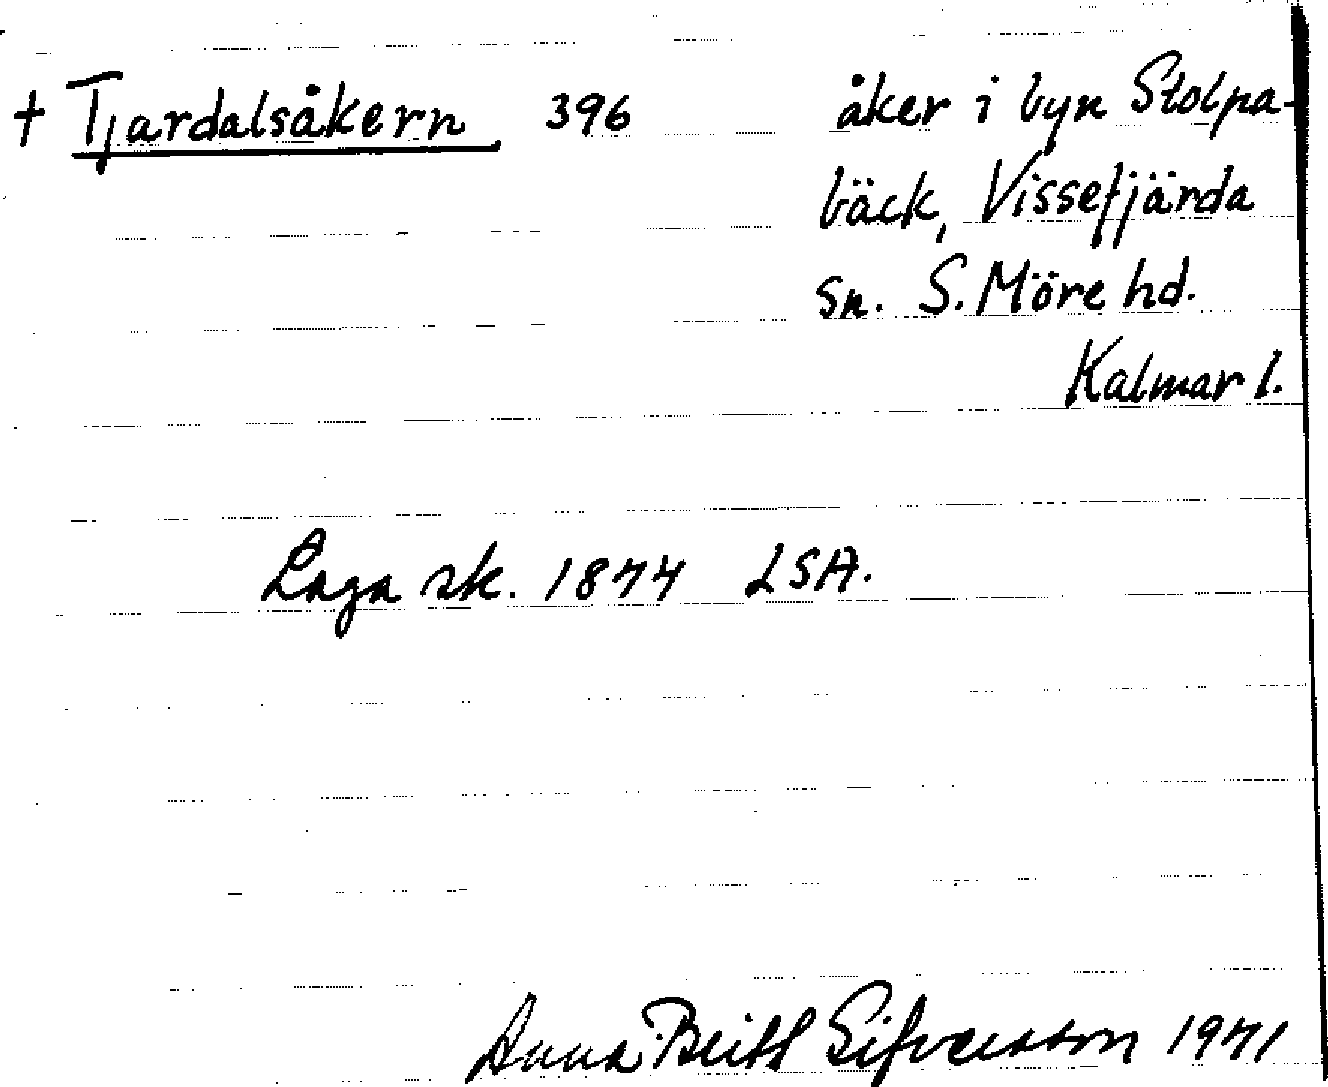 † Tjardalsåkern 396 åker i byn Stolpa-
bäck, Vissefjärda
sn. S. Möre hd.
Kalmar l.
Laga sk. 1877 LSA.
Anna Britt Sifversson 1971